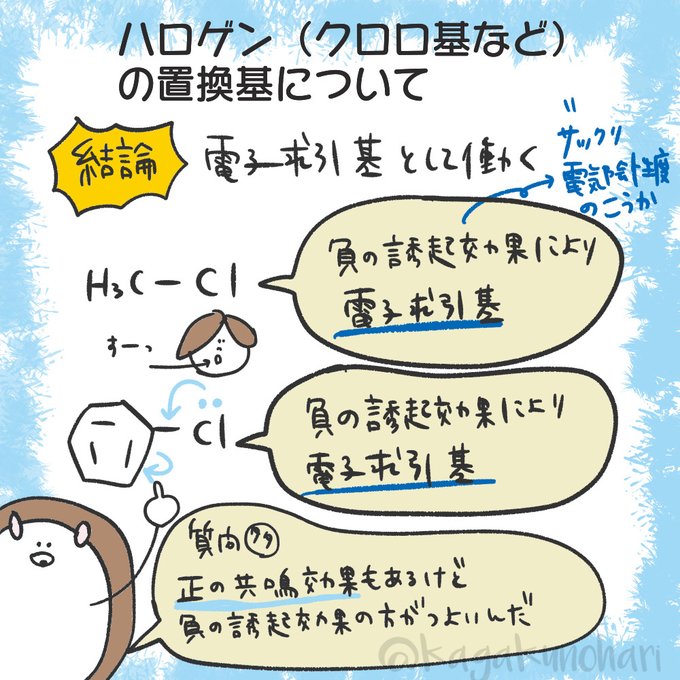 ハロゲン（クロロ基など）
の置換基について
結論
電子求引基として働く
〃
サックリ
電気陰性度
のこうか
H₃C－Cl
負の誘起効果により
電子求引基
すーっ
Cl
負の誘起効果により
電子求引基
正の共鳴効果もあるけど
負の誘起効果の方がつよいんだ
@kagakunohari